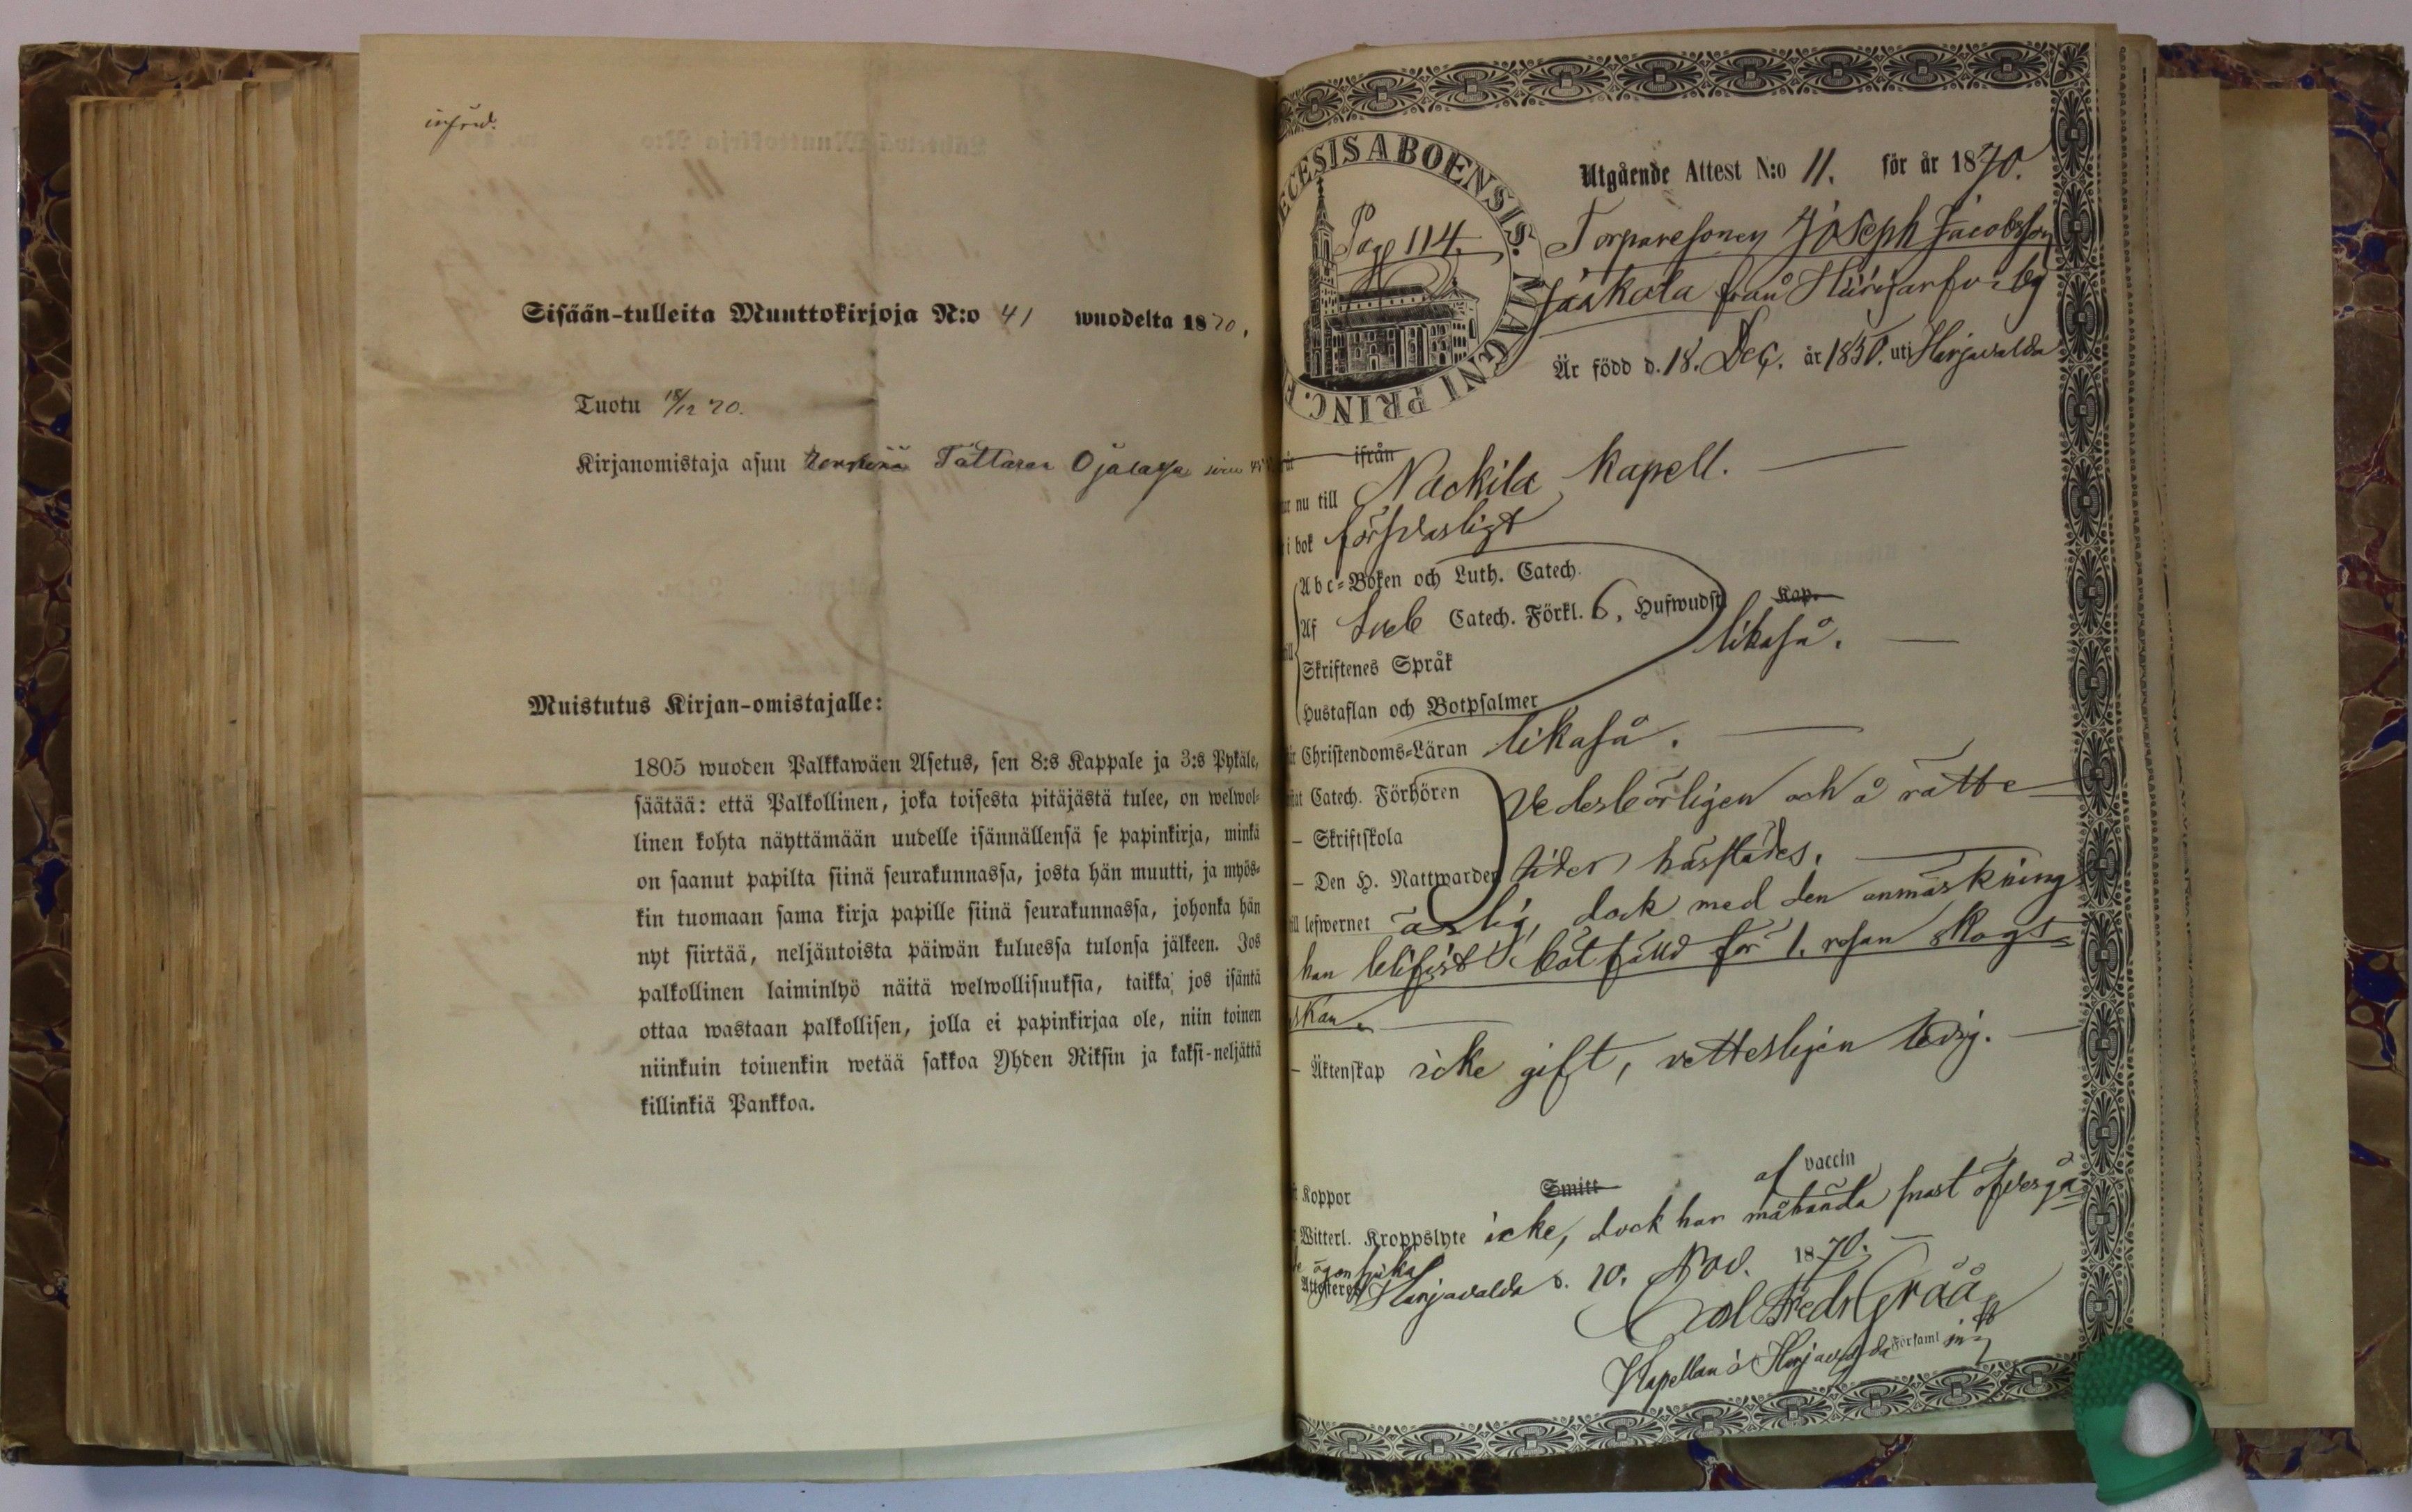 införd.
Sisään-tulleita Muuttokirjoja N:o 41 wuodelta 1870.
Tuotu 18/12 70.
Kirjanomistaja asuu Tattaran Ojalassa
Muistutus Kirjan-omistajalle:
1805 wuoden Palkkawäen Asetus, sen 8:s Kappale ja 3:s Pykäle,
säätää: että Palkollinen, joka toisesta pitäjästä tulee, on welwol-
linen kohta näyttämään uudelle isännällensä se papinkirja, minkä
on saanut papilta siinä seurakunnassa, josta hän muutti, ja myös-
kin tuomaan sama kirja papille siinä seurakunnassa, johonka hän
nyt siirtää, neljäntoista päiwän kuluessa tulonsa jälkeen. Jos
palkollinen laiminlyö näitä welwollisuuksia, taikka jos isäntä
ottaa wastaan palkollisen, jolla ei papinkirjaa ole, niin toinen
niinkuin toinenkin wetää sakkoa Yhden Riksin ja kaksi-neljättä
killinkiä Pankkoa.
ECESIS ABOENSIS. MAGNI PRINC.
Pag 114.
Utgående Attest N:o 11. för år 1870.
Torparesonen Joseph Jacobsson
Jaakola från Hiirijärvi by
Är född d. 18. Dec. år 1850. uti Harjavalda
ifrån
nu till Nackila Kapell.
i bok försvarligt
Abc-Boken och Luth. Catech.
Af Sveb Catech. Förkl. 6, Hufwudst. Kap.
likaså.
Skriftenes Språk
Hustaflan och Botpsalmer
Christendoms-Läran likaså.
Catech. Förhören vederbörligen och å rätte
– Skriftskola
– Den H. Nattwarden tider härstädes.
lefwernet ärlig, dock med den anmärkning
han blifvit bötfälld för 1. resan skogs-
åskan.
– Äktenskap icke gift, vetterligen ledig.
Koppor Smitt af vaccin
Witterl. Kroppslyte icke, dock har måhända snart öfvergå-
ögonsjuka
Attesterar Harjavalda d. 10. Nov. 1870.
Carl Fredr Gråå
Kapellan i Harjavalda Församl ing